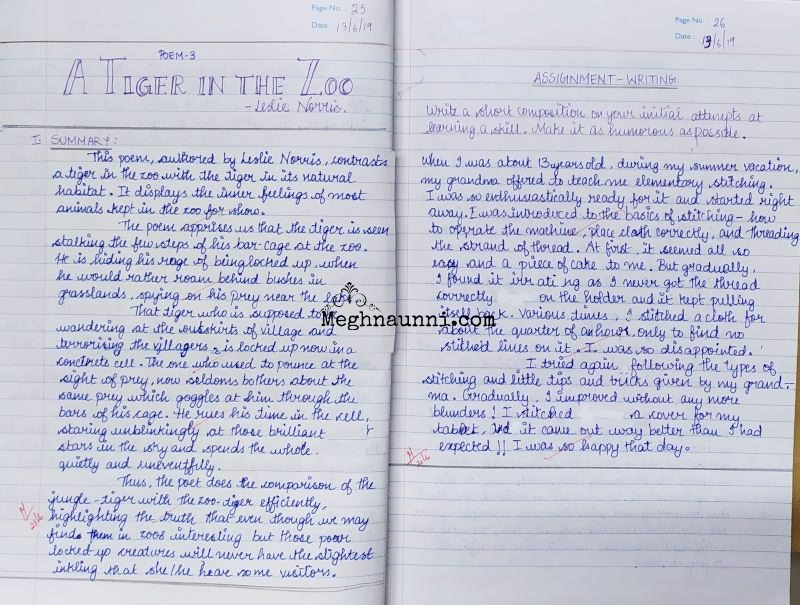 Page No. : 25
Date : 13/6/19
POEM-3
A TIGER IN THE ZOO
- Leslie Norris.
I. SUMMARY:
This poem, authored by Leslie Norris, contrasts
a tiger in the zoo with the tiger in its natural
habitat. It displays the inner feelings of most
animals kept in the zoo for show.
The poem apprises us that the tiger is seen
stalking the few steps of his bar-cage at the zoo.
He is hiding his rage of being locked up, when
he would rather roam behind bushes in
grasslands, spying on his prey near the lake.
That tiger who is supposed to
wandering at the outskirts of village and
terrorising the villagers, is locked up now in a
concrete cell. The one who used to pounce at the
sight of prey, now seldoms bothers about the
same prey which goggles at him through the
bars of his cage. He rues his time in the cell,
staring unblinkingly at those brilliant
stars in the sky and spends the whole
quietly and uneventfully.
Thus, the poet does the comparison of the
jungle-tiger with the zoo-tiger efficiently,
highlighting the truth that even though we may
find them in zoos interesting but those poor
locked up creatures will never have the slightest
inkling that she/he hear some visitors.
2/16
Meghnaunni.com
Page No. : 26
Date : 13/6/19
ASSIGNMENT - WRITING:
Write a short composition on your initial attempts at
learning a skill. Make it as humorous as possible.
When I was about 13 years old, during my summer vacation,
my grandma offered to teach me elementary stitching.
I was so enthusiastically ready for it and started right
away. I was introduced to the basics of stitching - how
to operate the machine, place cloth correctly, and threading
the strand of thread. At first, it seemed all so
easy and a piece of cake to me. But gradually,
I found it irrating as I never got the thread
correctly on the holder and it kept pulling
itself back. Various times, I stitched a cloth for
about the quarter of an hour, only to find no
stitched lines on it. I was so disappointed.
I tried again, following the types of
stitching and little tips and tricks given by my grand-
ma. Gradually, I improved without any more
blunders! I stitched a cover for my
tablet, and it came out way better than I had
expected!! I was so happy that day.
2/16